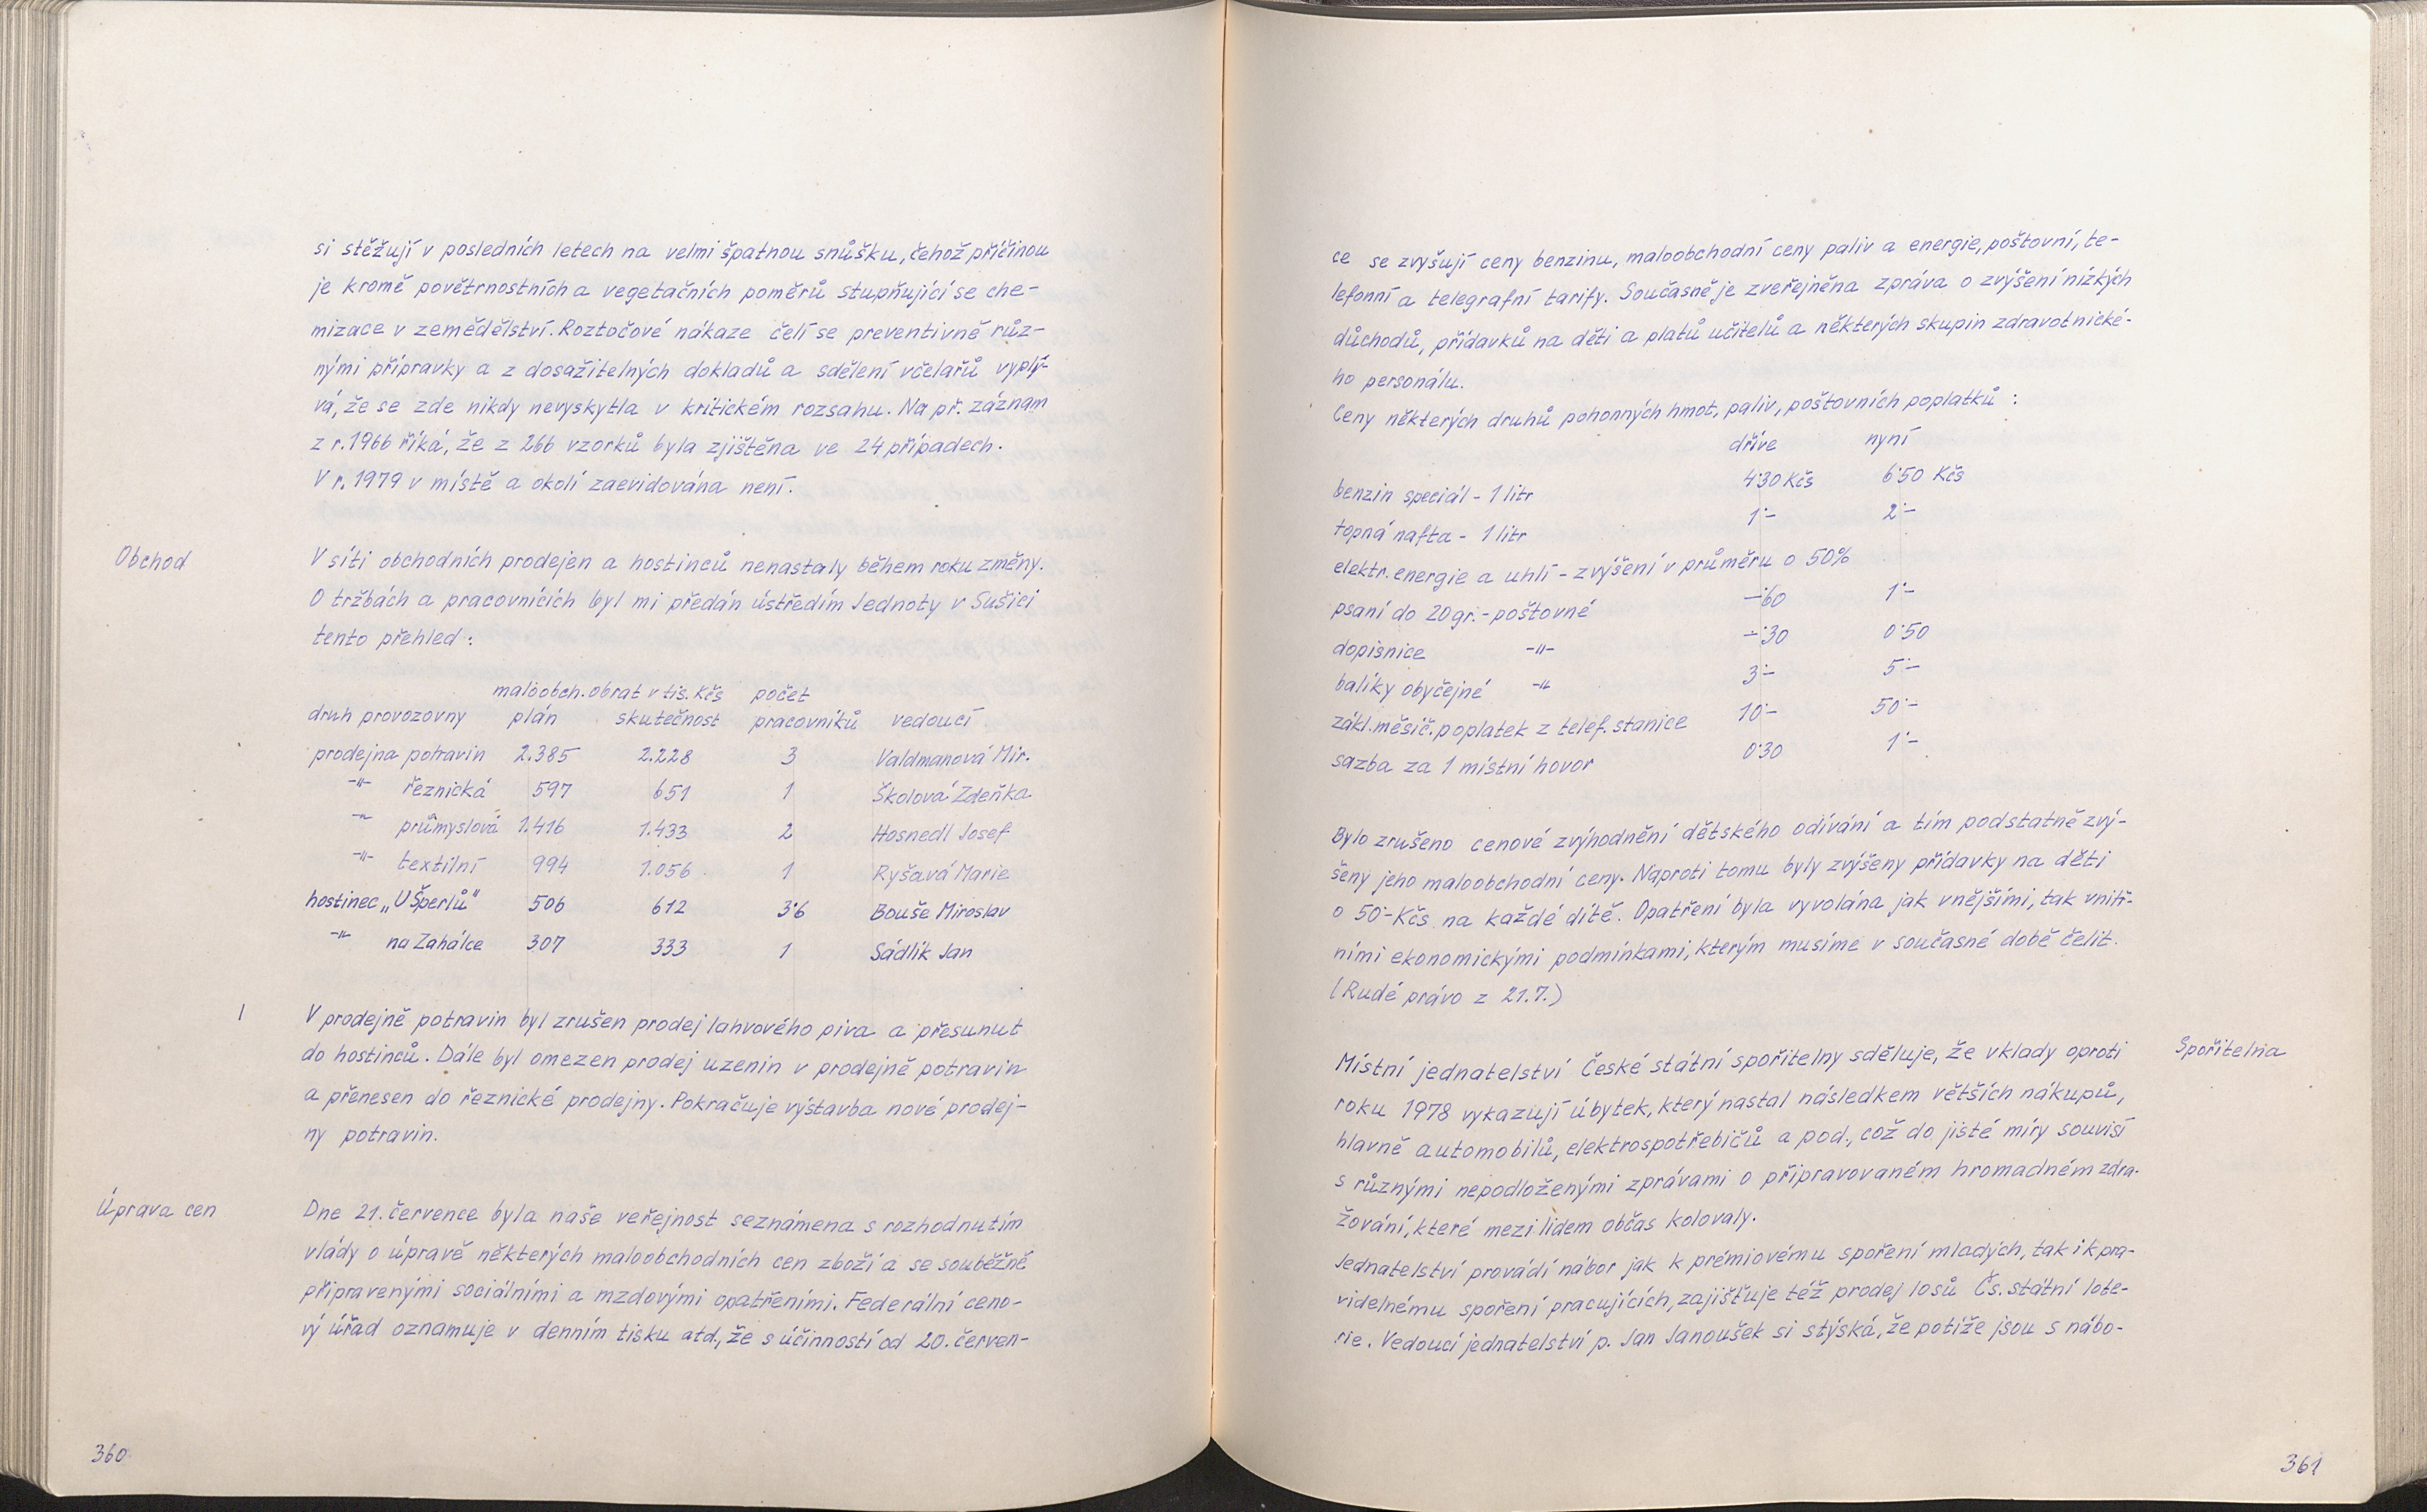 si stěžují v posledních letech na velmi špatnou snůšku, čehož příčinou
je kromě povětrnostních a vegetačních poměrů stupňující se che-
mizace v zemědělství. Roztočové nákaze čelí se preventivně růz-
nými přípravky a z dosažitelných dokladů a sdělení včelařů vyplý-
vá, že se zde nikdy nevyskytla v kritickém rozsahu. Na př. záznam
z r. 1966 říká, že z 266 vzorků byla zjištěna ve 24 případech.
V r. 1979 v místě a okolí zaevidována není.
Obchod
V síti obchodních prodejen a hostinců nenastaly během roku změny.
O tržbách a pracovnících byl mi předán ústředím Jednoty v Sušici
tento přehled:
maloobch. obrat v tis. Kčs počet
druh provozovny plán skutečnost pracovníků vedoucí
prodejna potravin 2.385 2.228 3 Valdmanová Mir.
-"- řeznická 597 651 1 Školová Zdeňka
-"- průmyslová 1.416 1.433 2 Hosnedl Josef
-"- textilní 994 1.056 1 Ryšavá Marie
hostinec „U Šperlů" 506 612 3˙6 Bouše Miroslav
-"- na Zahálce 307 333 1 Sádlík Jan
V prodejně potravin byl zrušen prodej lahvového piva a přesunut
do hostinců. Dále byl omezen prodej uzenin v prodejně potravin
a přenesen do řeznické prodejny. Pokračuje výstavba nové prodej-
ny potravin.
Úprava cen
Dne 21. července byla naše veřejnost seznámena s rozhodnutím
vlády o úpravě některých maloobchodních cen zboží a se souběžně
připravenými sociálními a mzdovými opatřeními. Federální ceno-
vý úřad oznamuje v denním tisku atd., že s účinností od 20. červen-
360
ce se zvyšují ceny benzinu, maloobchodní ceny paliv a energie, poštovní, te-
lefonní a telegrafní tarify. Současně je zveřejněna zpráva o zvýšení nízkých
důchodů, přídavků na děti a platů učitelů a některých skupin zdravotnické-
ho personálu.
Ceny některých druhů pohonných hmot, paliv, poštovních poplatků :
dříve nyní
benzin speciál - 1 litr 4˙30 Kčs 6˙50 Kčs
topná nafta - 1 litr 1˙- 2˙-
elektr. energie a uhlí - zvýšení v průměru o 50%
psaní do 20 gr. - poštovné -˙60 1˙-
dopisnice -"- -˙30 0˙50
balíky obyčejné -"- 3˙- 5˙-
zákl. měsíč. poplatek z telef. stanice 10˙- 50˙-
sazba za 1 místní hovor 0˙30 1˙-
Bylo zrušeno cenové zvýhodnění dětského odívání a tím podstatně zvý-
šeny jeho maloobchodní ceny. Naproti tomu byly zvýšeny přídavky na děti
o 50˙- Kčs na každé dítě. Opatření byla vyvolána jak vnějšími, tak vnitř-
ními ekonomickými podmínkami, kterým musíme v současné době čelit.
(Rudé právo z 21.7.)
Spořitelna
Místní jednatelství České státní spořitelny sděluje, že vklady oproti
roku 1978 vykazují úbytek, který nastal následkem větších nákupů,
hlavně automobilů, elektrospotřebičů a pod., což do jisté míry souvisí
s různými nepodloženými zprávami o připravovaném hromadném zdra-
žování, které mezi lidem občas kolovaly.
Jednatelství provádí nábor jak k prémiovému spoření mladých, tak i k pra-
videlnému spoření pracujících, zajišťuje též prodej losů Čs. státní lote-
rie. Vedoucí jednatelství p. Jan Janoušek si stýská, že potíže jsou s nábo-
361